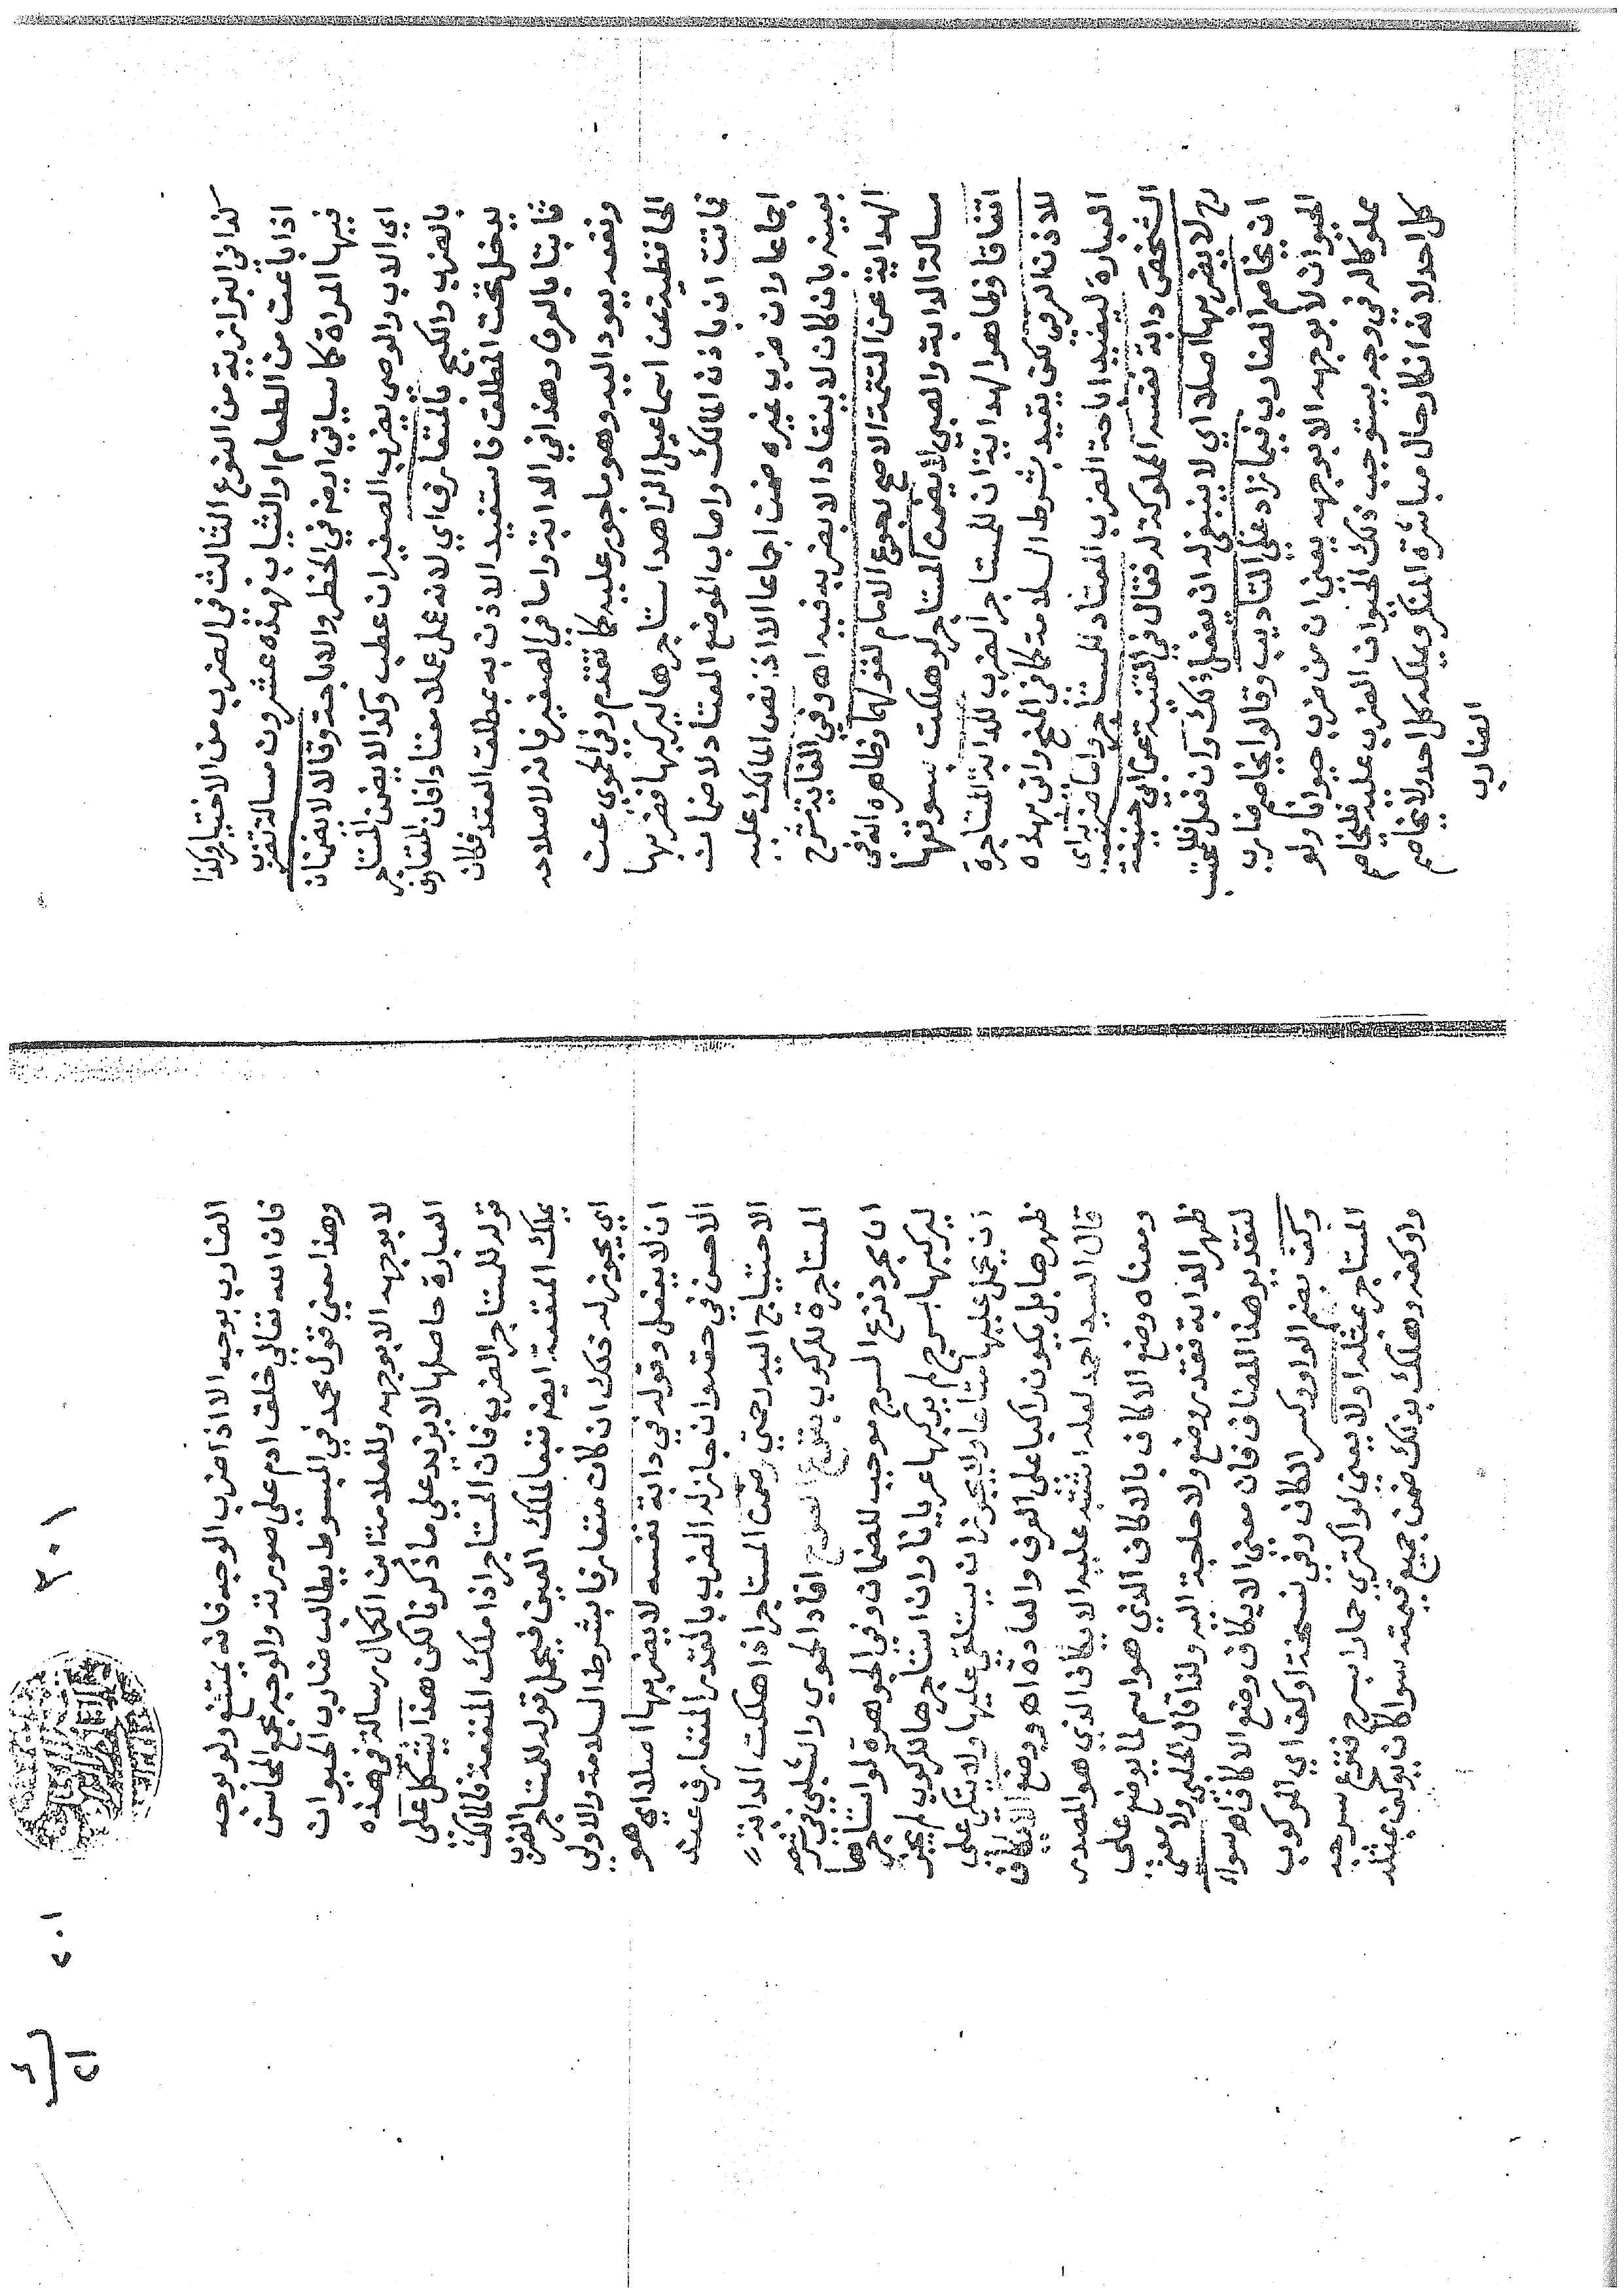 كذا في البزازية من النوع الثالث في الضرب من الاختيار وكذا
اذا باعت من الطعام او الثياب فهذه عشرون مسالة تضرب
فيها المراة كما سياتي ايضا في الحظر والاباحة وقالا لا يضمنان
اي الاب والوصي بضرب الصغير ان عطب وكذا لا يضمن المستاجر
بالضرب والكبح بالمتعارف اي لانه عمل عملا معتادا فان المتعارف
يدخل تحت المطلق فاستفيد الاذن به بمطلق العقد فكان
ثابتا بالعرف وهذا في الدابة واما في الصغير فانه لاصلاحه
ونفعه يعود اليه وهو ماجور عليه كما تقدم وفي الحموي عن
الحافظية عن اسماعيل الزاهد استاجرها ليركبها فضربها
فماتت ان باذن المالك واصاب الموضع المعتاد لا ضمان
اجماعا وان ضرب غيره ضمن اجماعا الا اذا نص المالك عليه
بعينه بان كان لا ينقاد الا بضربه فيه اه وفي الغاية شرح
الهداية عن التتمة الاصح رجوع الامام لقولهما وظاهره انه في
مسالة الدابة والصبي لا يضمن المستاجر لو هلكت بسوقها
اتفاقا وظاهر الهداية ان للمستاجر الضرب للدابة المستاجرة
للاذن العرفي لكن يقيد بشرط السلامة كما في المنح واتى بهذه
العبارة ليفيد اباحة الضرب المعتاد للمستاجر واما ضربه اي
الشخص دابة نفسه المملوكة له فقال في القنية عن ابي حنيفة
رح لا يضربها اصلا اي لا ينبغي له ان يفعل ذلك وان فعل
ان يخاصم الضارب فيما زاد على التاديب وقالوا يخاصم ضارب
الحيوان لا بوجهه الا بوجهه يعني ان من ضرب حيوانا ولو
مملوكا له في وجه يستوجب ذلك الحيوان الضرب عليه فليخاصم
كل احد لانه انكار حال مباشرة المنكر ويملكه كل احد ولا يخاصم
الضارب
٢٠١
٢٠١
الضارب بوجه الا اذا ضرب الوجه فانه يمنع ولو بوجه
فان الله تعالى خلق ادم على صورته والوجه مجمع المحاسن
وهذا معنى قول محمد في المبسوط يطالب ضارب الحيوان
لا بوجهه الا بوجهه وللعلامة ابن الكمال رسالة في هذه
العبارة حاصلها لا يزيد على ما ذكرنا لكن هذا يشكل على
قوله للمستاجر الضرب فان المستاجر اذا ملك المنفعة فالمالك
يملك المنفعة ايضا تبعا لملك العين فيحمل قوله للمستاجر الضرب
اي يجوز له ذلك ان كان متعارفا بشرط السلامة والاولى
ان لا يفعل وقوله في دابة نفسه لا يضربها اصلا اي هو
الاحسن في حقه وان جاز له الضرب بالقدر المتعارف عند
الاحتياج اليه رحمتي ضمن المستاجر اذا هلكت الدابة
المستاجرة للركوب بنزع السرج افاد الحموي والشلبي في شرحه
ان مجرد نزع السرج موجب للضمان وفي الجوهرة لو استاجرها
ليركبها بسرج لم يركبها عريانا وان استاجرها للركوب لم يجز
ان يحمل عليها متاعا ولا يجوز ان يستلقي عليها ولا يتكي على
ظهرها بل يكون راكبا على العرف والعادة اه ووضع الايكاف
قال السيد احمد لعله اشتبه عليه الايكاف الذي هو المصدر
ومعناه وضع الاكاف بالاكاف الذي هو اسم لما يوضع على
ظهر الدابة فقدر وضع ولا حاجة اليه ولذا قال الحلبي ولا معنى
لتقدير هذا المضاف فان معنى الايكاف وضع الاكاف اه سواء
وكف بضم الواو وكسر الكاف وفي نسخة اوكف اي المركوب
المستاجر بمثله اولا يعني لو اكترى حمارا بسرج فنزع سرجه
واوكفه وهلك بذلك ضمن جميع قيمته سواء كان يوكف بمثله